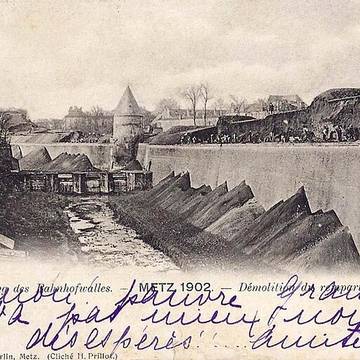 des Bahnhofwalles. — METZ 1902. — Démolition du rempar
mon pauvre Gran
a pas mieux + nou
désespérés ... amit
rlin, Metz. (Cliché H. Prillot.)